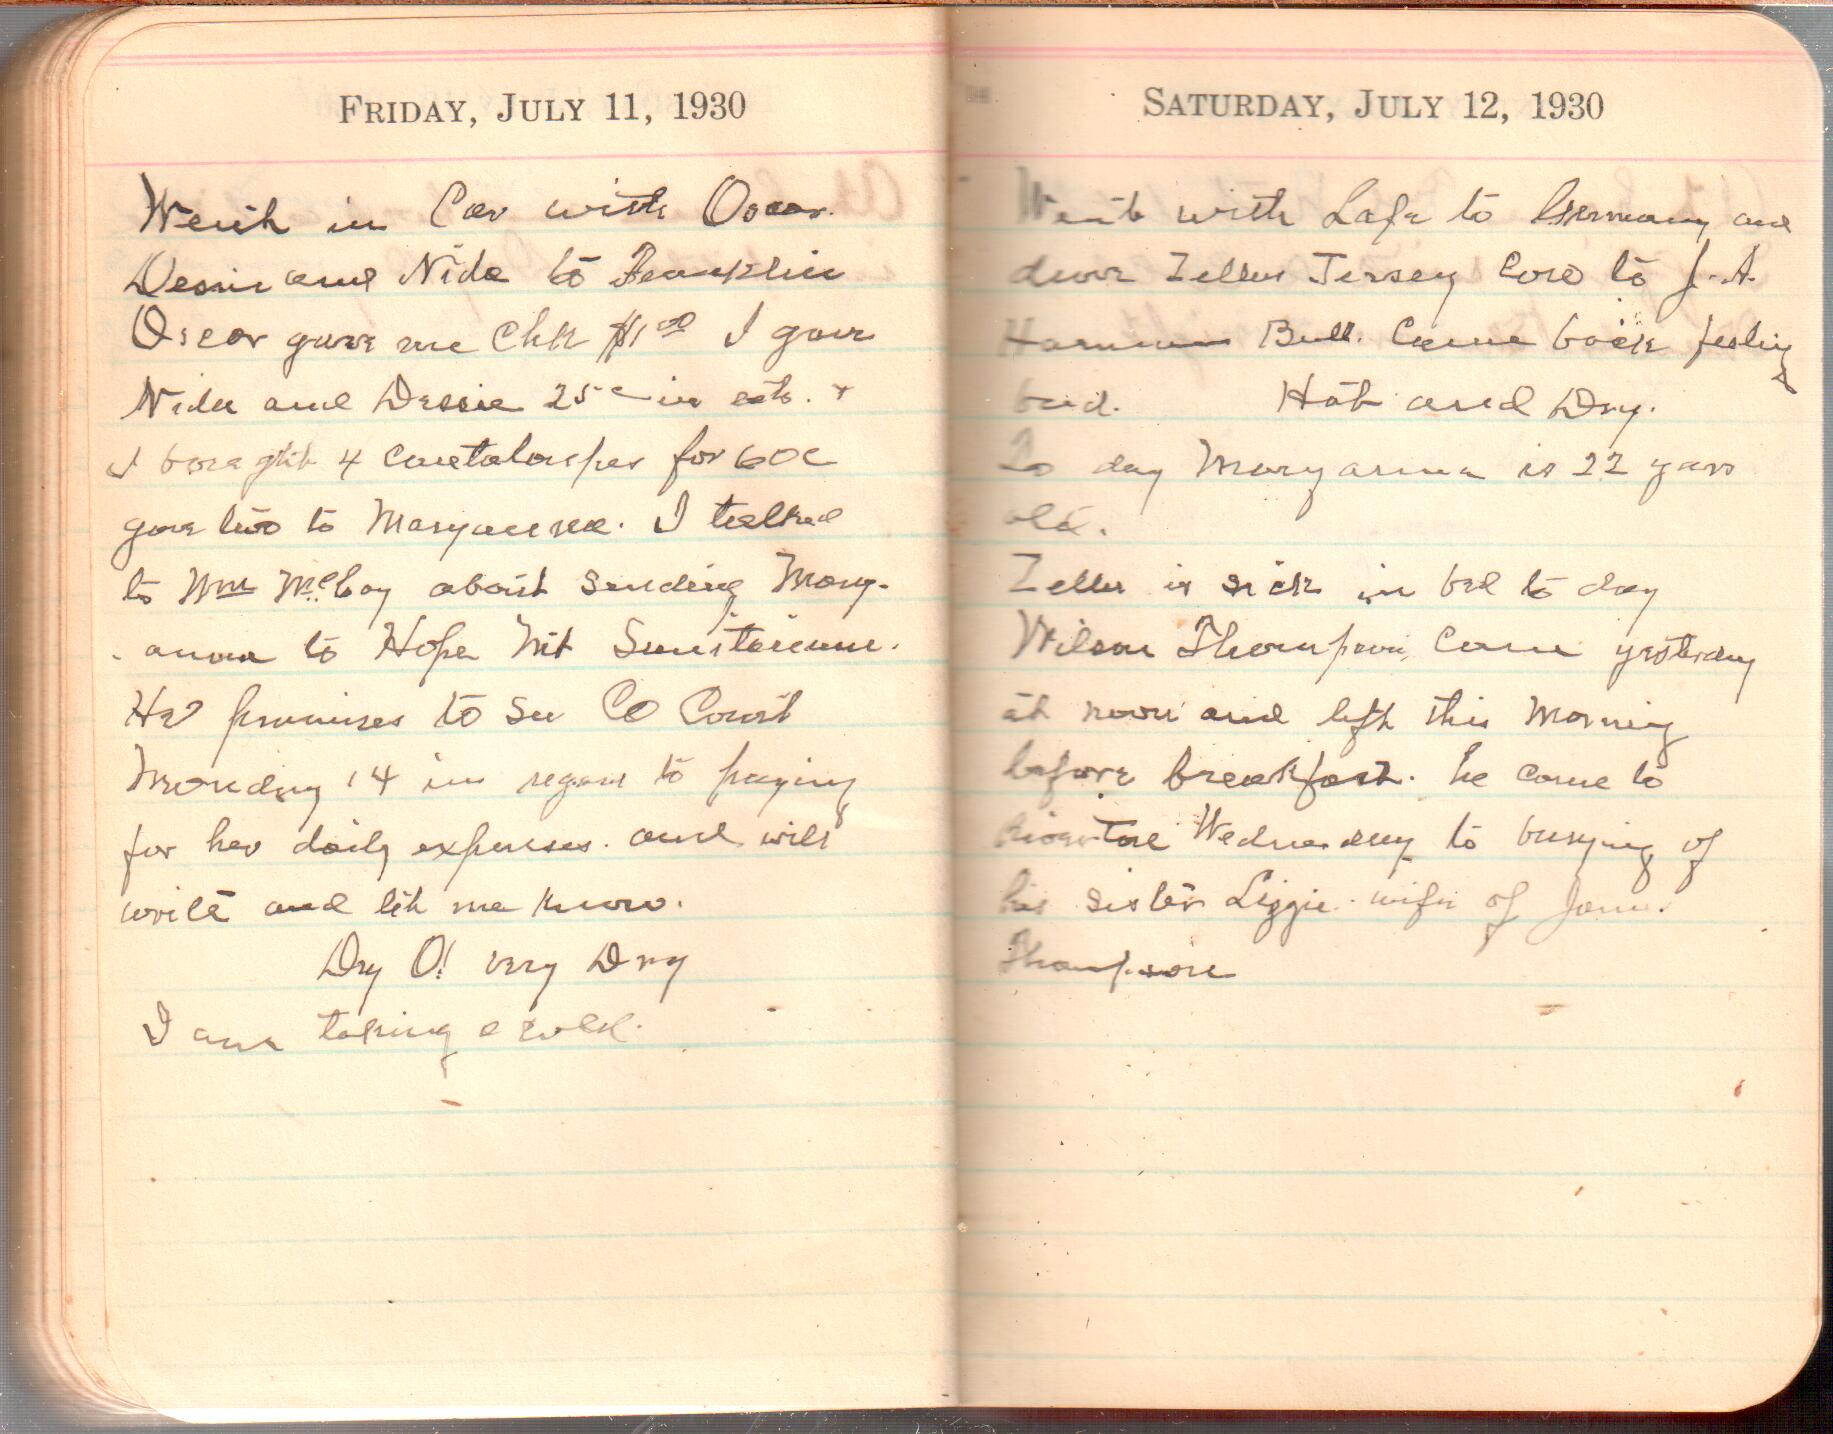 FRIDAY, JULY 11, 1930
Went in Car with Oscar.
Dessie and Nida to Franklin
Oscar gave me Chk $1.00 I gave
Nida and Dessie 25c in ets. +
I bought 4 cantaloupes for 60c
gave two to Maryanna. I talked
to Wm McCoy about sending Mary-
anna to Hope Mt Sanitarium.
He promises to See Co Court
Monday 14 in regard to paying
for her daily expenses. and will
write and let me know.
Dry O! very Dry
I am taking a cold.
SATURDAY, JULY 12, 1930
Went with Lafe to Germany and
drove Zellers Jersey Cow to J. A.
Bull. Came back feeling
bad. Hot and Dry.
To day Maryanna is 22 years
old.
Zeller is sick in bed to day
Wilson Thompson, Came yesterday
at noon and left this Morning
before breakfast. he come to
Wednesday to burying of
his sister Lizzie. wife of
Thompson